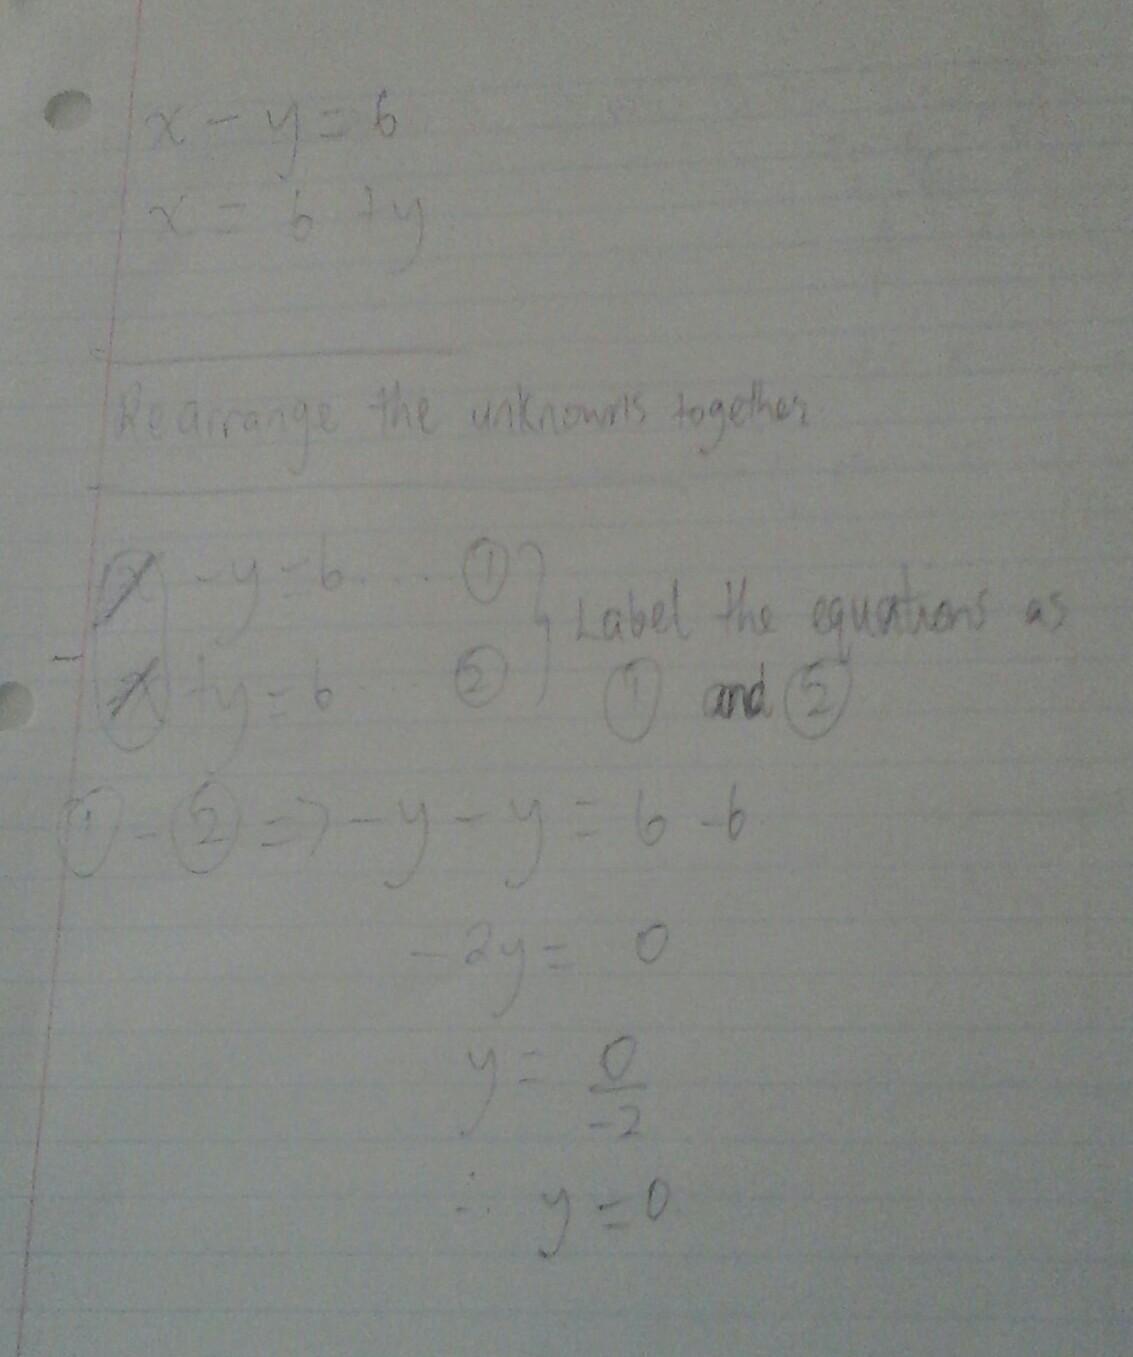 x - y = 6
x = 6 + y
Rearrange the unknowns together
x - y = 6 .... ①
Label the equations as
- x + y = 6 .... ② ① and ②
① - ② => -y - y = 6 - 6
-2y = 0
y = 0/-2
∴ y = 0